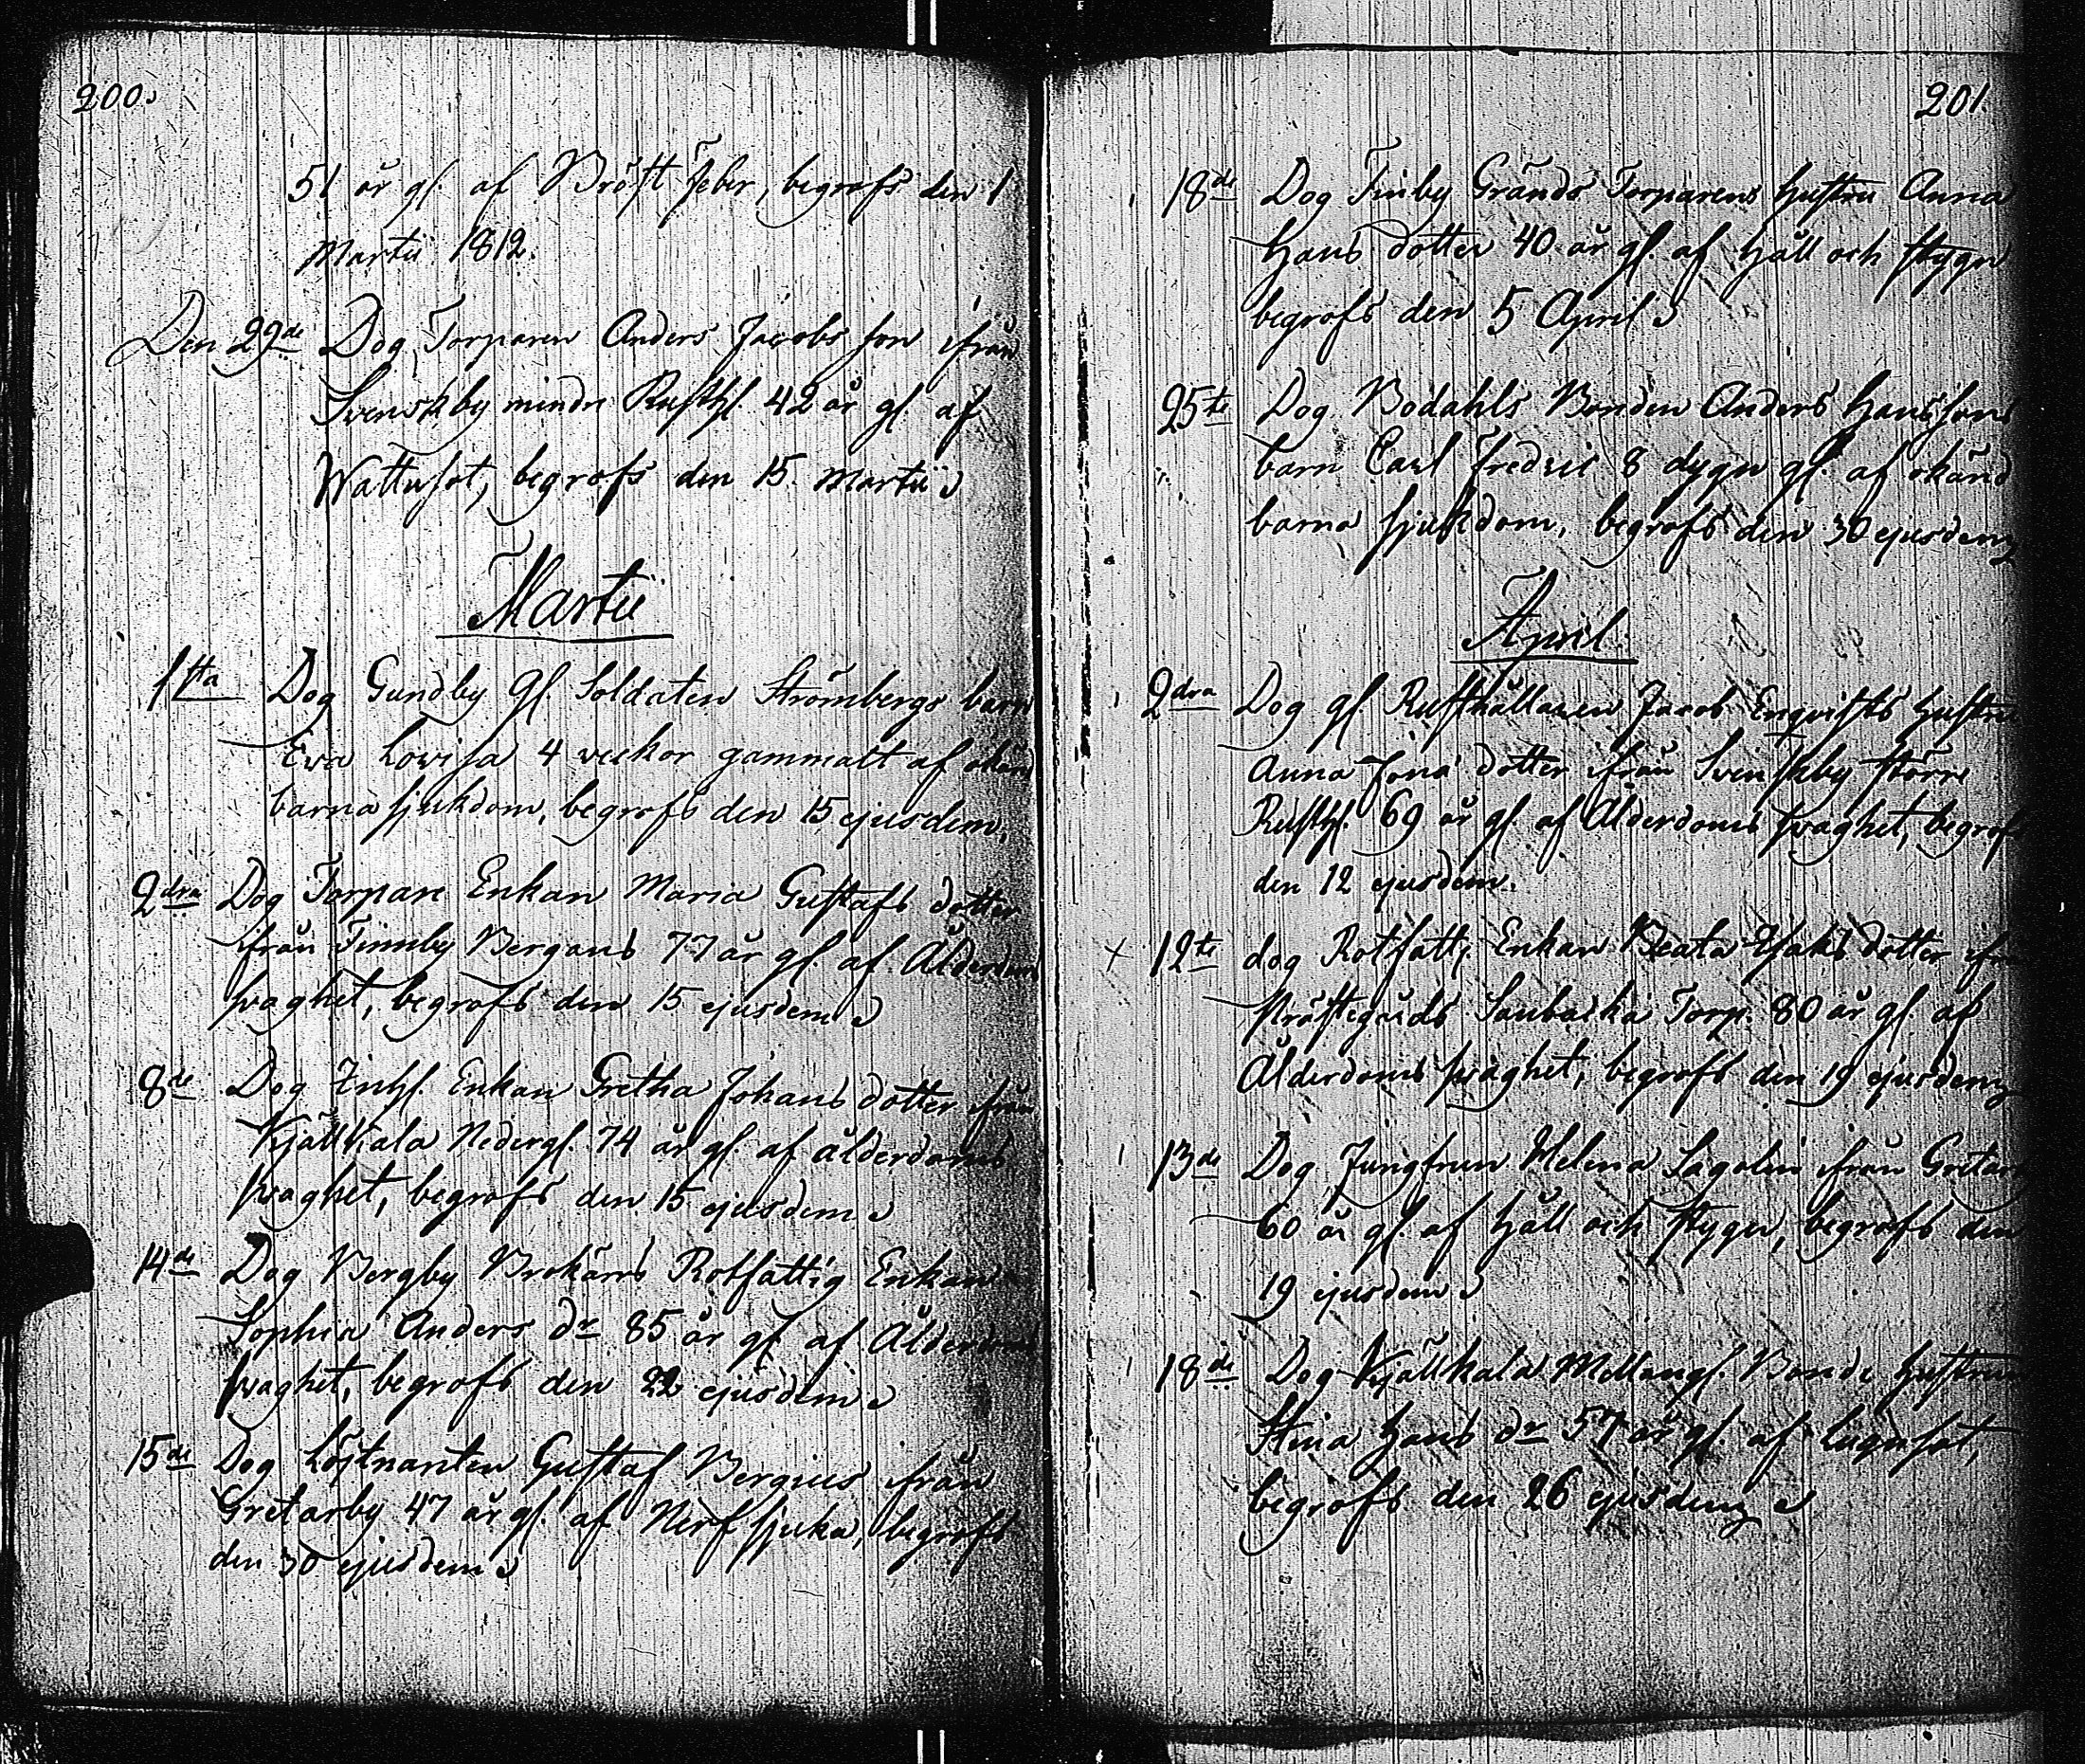 200.
51 år gl. af Bröst Feber, begrofs den 1
Martii 1812.
Den 29de Dog Torparen Anders Jacobs son ifrån
Svenskby mindre Rusth. 42 år gl. af
Wattusot, begrofs den 15 Martii
Martii
1sta Dog Gundby Gl. Soldaten Strömbergs barn
Eva Lovisa 4 veckor gammalt af okänd
barna sjukdom, begrofs den 15 ejusdem.
2dra Dog Torpare Enkan Maria Gustafs dotter
ifrån Finnby Bergans 77 år gl. af Ålderdoms
svaghet, begrofs den 15 ejusdem
8de Dog Inhs. Enkan Gretha Johans dotter ifrån
Kjällkala Nedergl. 74 år gl. af ålderdoms
svaghet, begrofs den 15 ejusdem
14de Dog Bergby Brokärrs Rotfattig Enkan
Sophia Anders dr 85 år gl. af Ålderdoms
svaghet, begrofs den 22 ejusdem
15de Dog Löjtnanten Gustaf Bergius ifrån
Gretarby 47 år gl. af Nerfsjuka, begrofs
den 30 ejusdem
201
18de Dog Finby Gränds Torparens hustru Anna
Hans dotter 40 år gl. af håll och stygn
begrofs den 5 April
25te Dog Bodahls Bonden Anders Hanssons
barn Carl Fredric 8 dygn gl. af okänd
barna sjukdom, begrofs den 30 ejusdem
April
2dra Dog gl. Rusthållaren Jacob Enqvists hustru
Anna Jons dotter ifrån Svenskby större
Rusth. 69 år gl. af Ålderdoms svaghet, begrofs
den 12 ejusdem.
12te dog Rotfatt. Enkan Beata Isaks dotter ifrån
Prästegårds Torp. 80 år gl. af
Ålderdoms svaghet, begrofs den 19 ejusdem
13de Dog Jungfrun Helena Sagolin ifrån Gretarby
60 år gl. af håll och stygn, begrofs den
19 ejusdem
18de Dog Kjällkala Mellangl. Bonde hustrun
Stina Hans dr 57 år gl. af lugnsot,
begrofs den 26 ejusdem